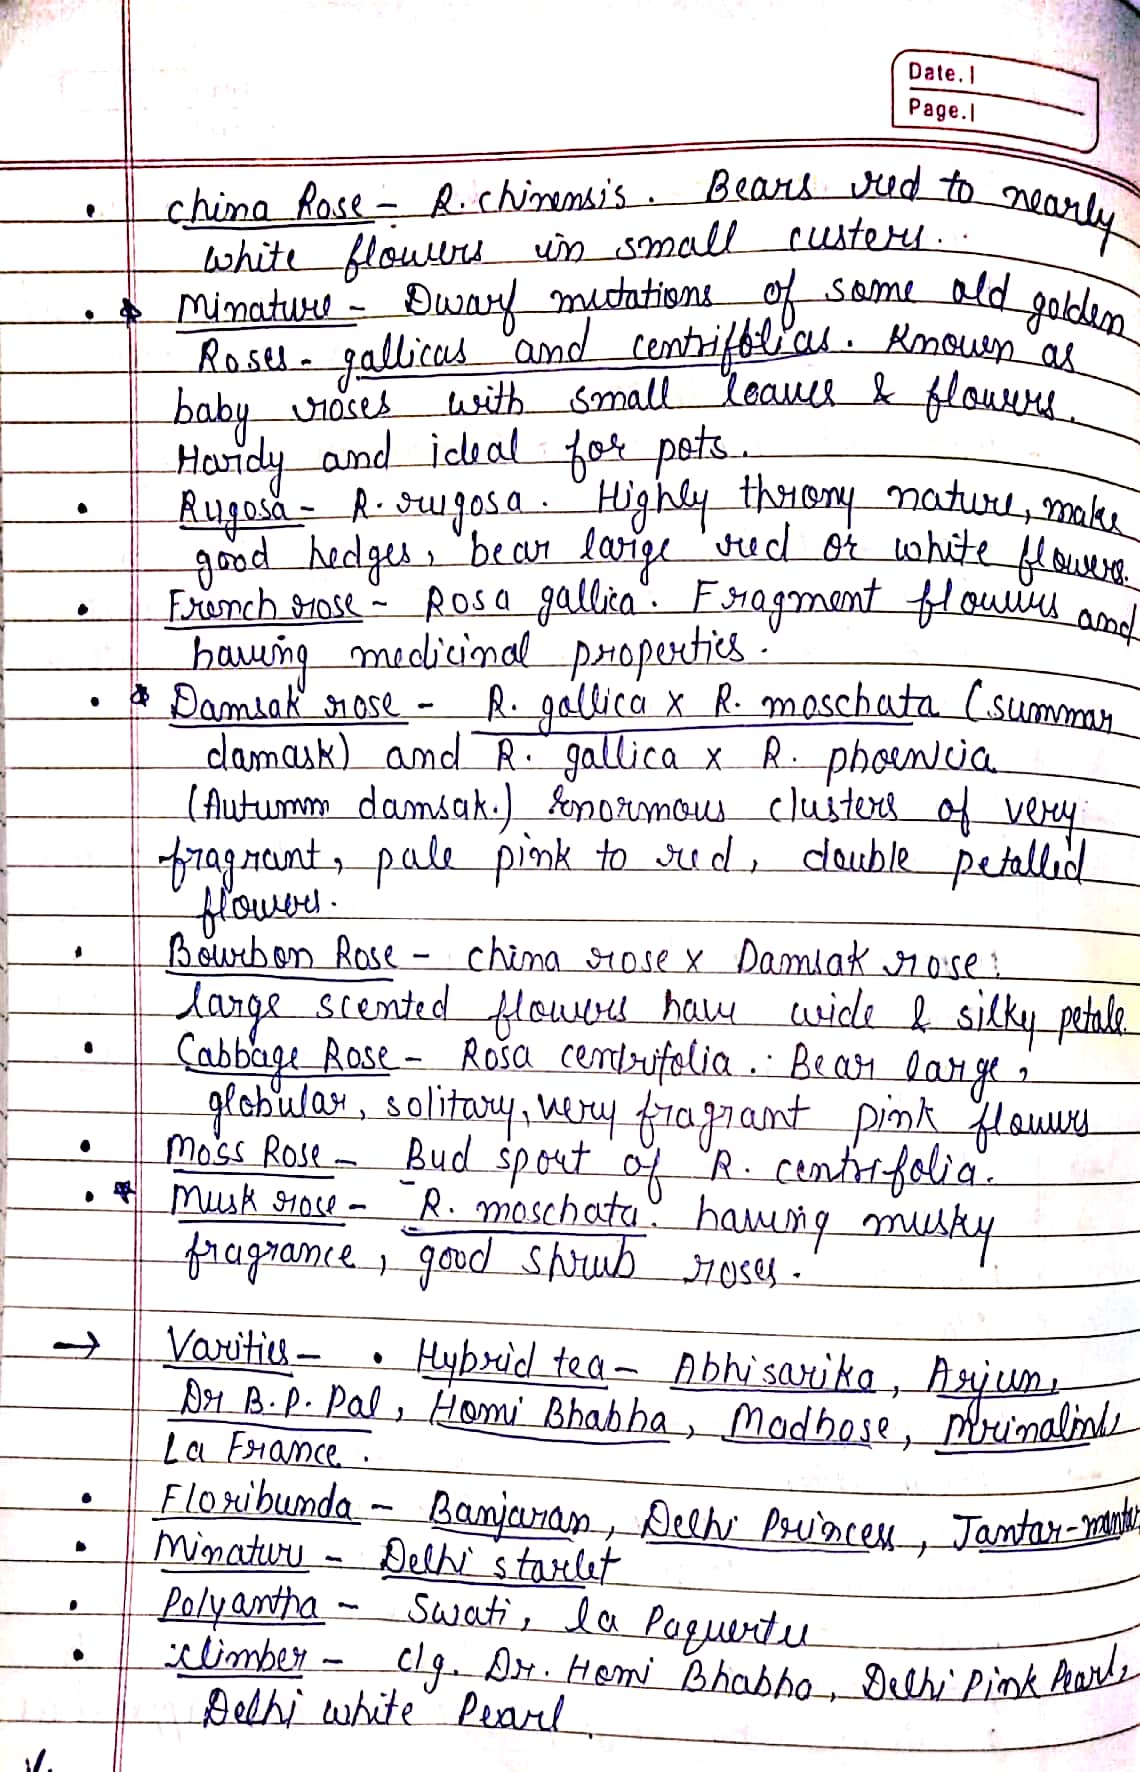 Date.
Page.
• China Rose - R. chinensis. Bears red to nearly
white flowers in small custers.
• Minature - Dwarf mutations of some old golden
Roses - gallicas and centrifolias. Known as
baby roses with small leaves & flowers.
Hardy and ideal for pots.
• Rugosa - R. rugosa. Highly throny nature, make
good hedges, bear large red or white flowers.
• French rose - Rosa gallica. Fragment flowers and
having medicinal properties.
• Damsak rose - R. gallica x R. moschata (summar
damask) and R. gallica x R. phoenicia
(Autumm damsak.) Enormous clusters of very
fragrant, pale pink to red, double petalled
flowers.
• Bourbon Rose - china rose x Damsak rose.
large scented flowers have wide & silky petals.
• Cabbage Rose - Rosa centrifolia. Bear large,
globular, solitary, very fragrant pink flowers
• Moss Rose - Bud sport of R. centrifolia.
• Musk rose - R. moschata. having musky
fragrance, good shrub roses.
→ Varities - • Hybrid tea - Abhisarika, Arjun,
Dr B.P. Pal, Homi Bhabha, Madhose, Mrinalini,
La France.
• Floribunda - Banjaran, Delhi Princess, Jantar-mantar
• Minature - Delhi starlet
• Polyantha - Swati, la Paquerte
• climber - clg. Dr. Homi Bhabha, Delhi Pink Pearl,
Delhi white Pearl.